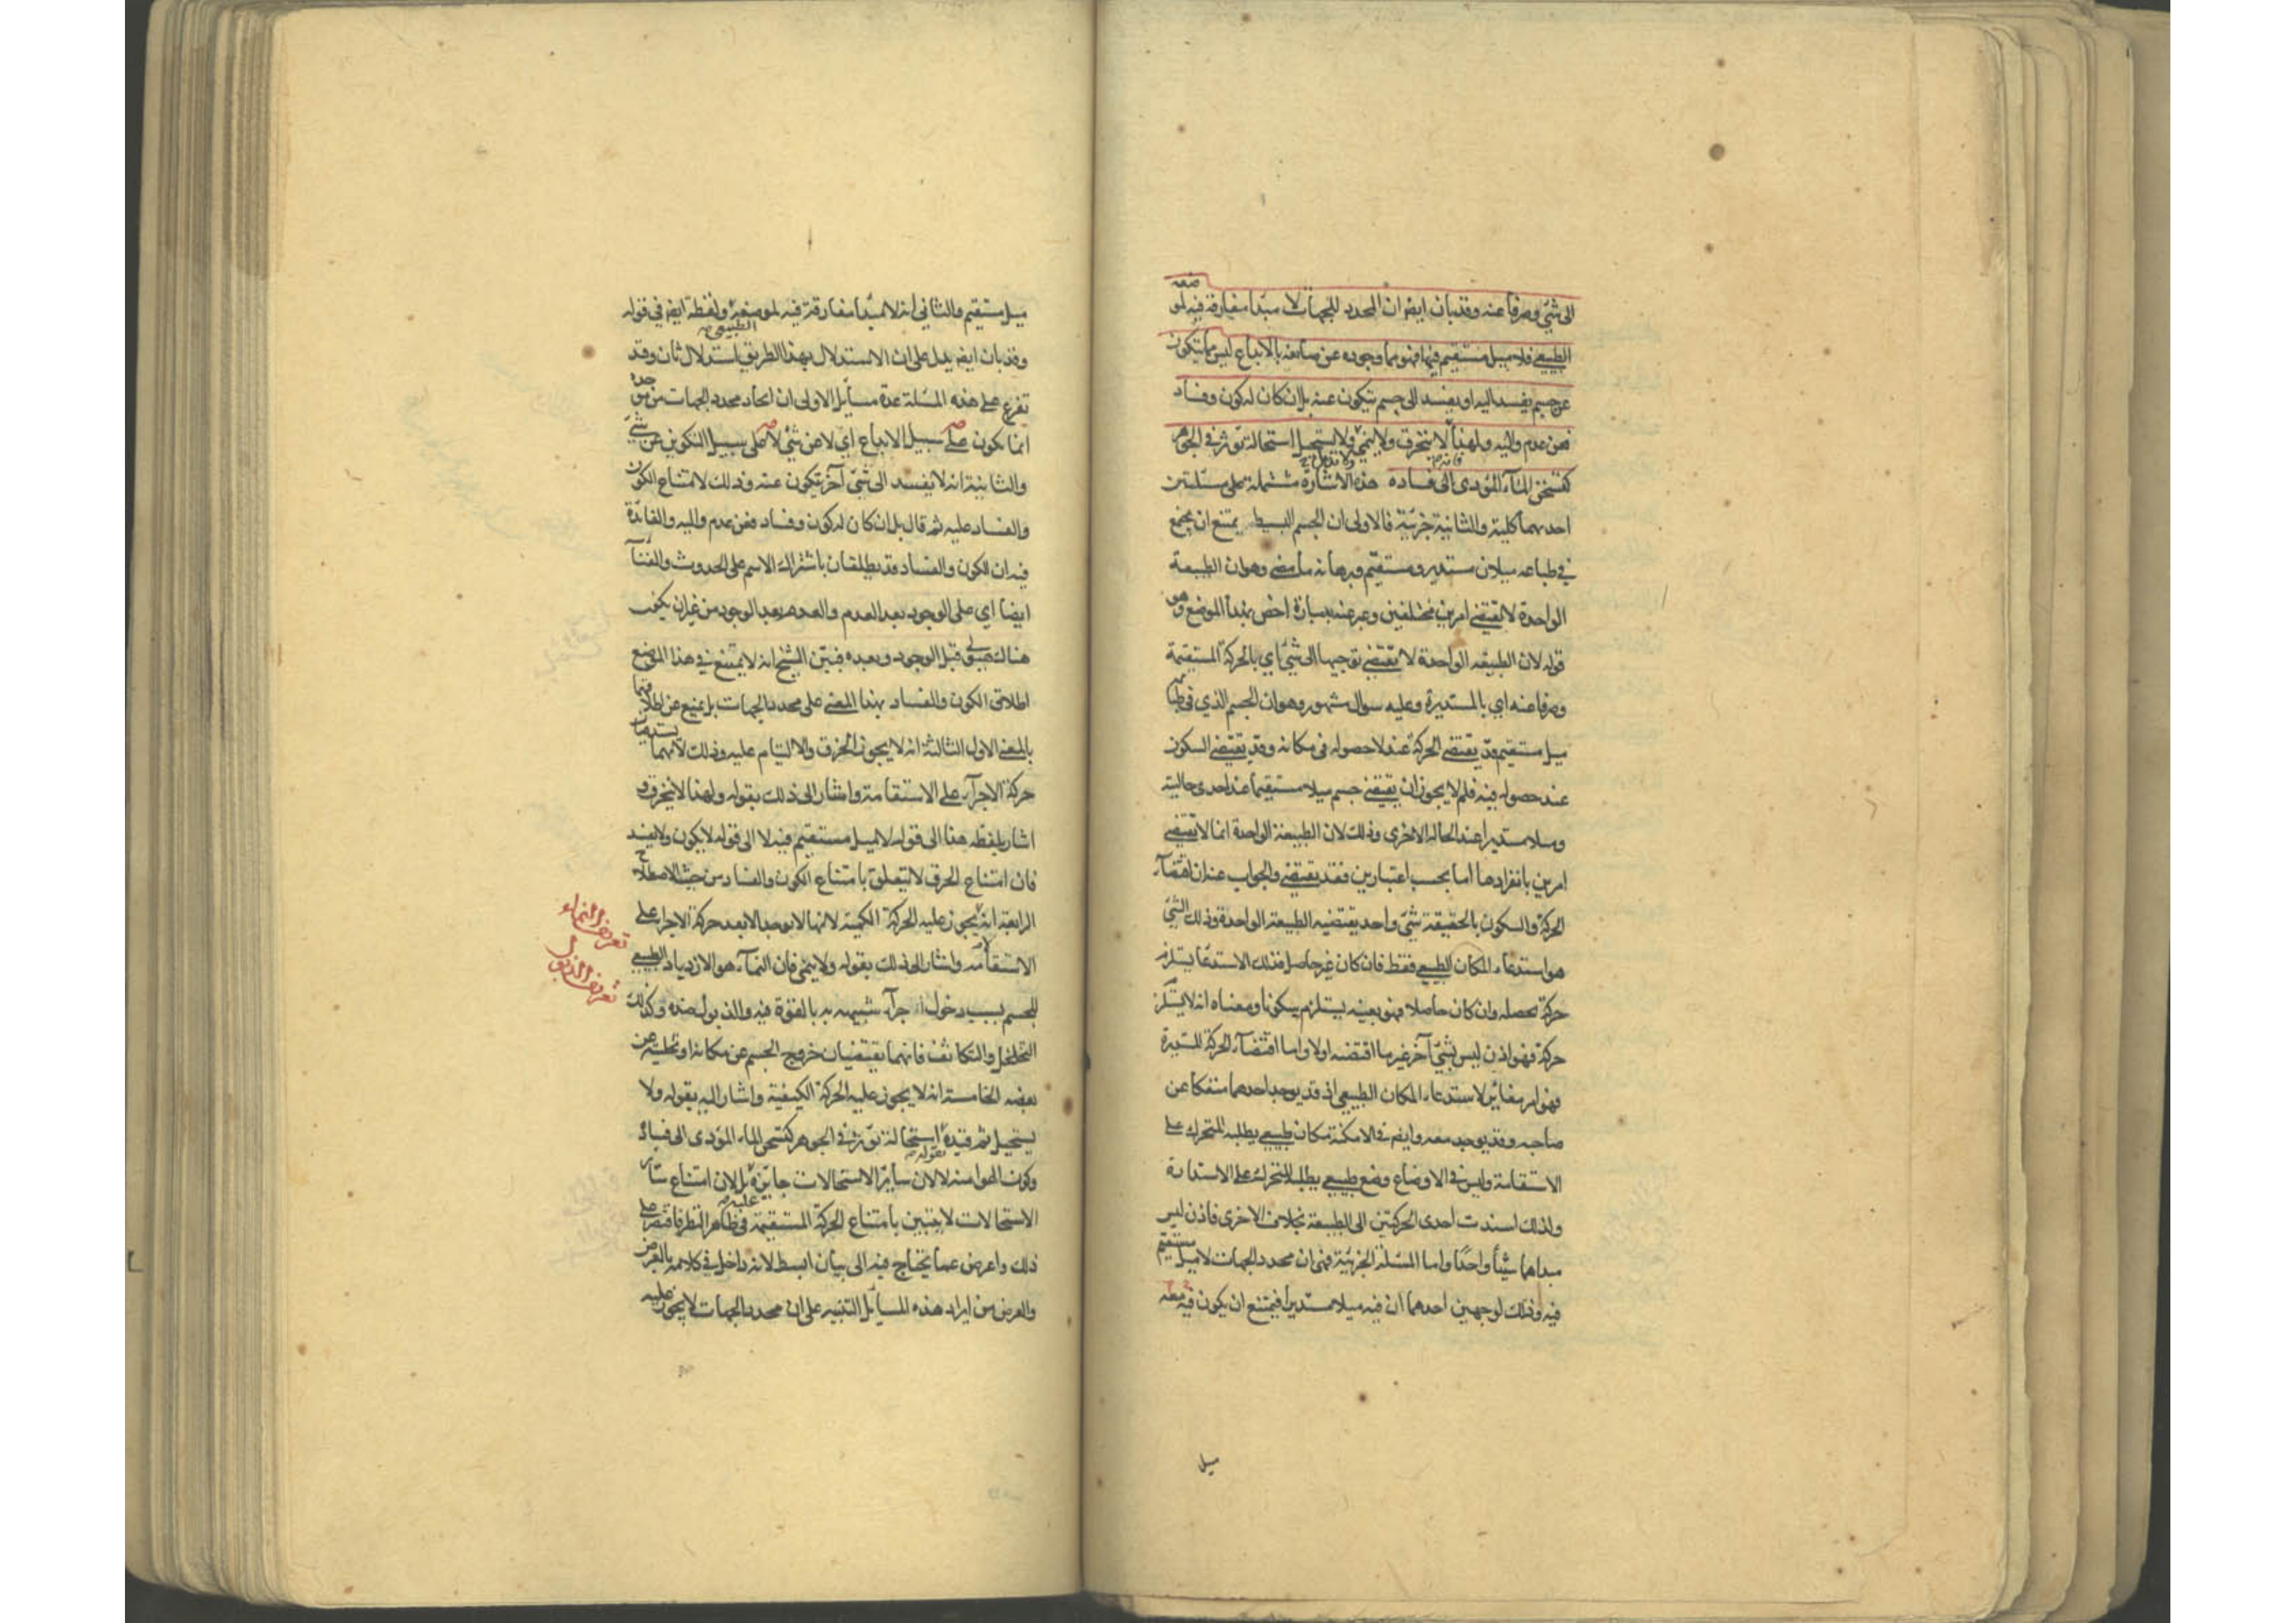 الى شئ وصرفا عنه وقد بان ايضا ان المحدد للجهات لا مبدأ مفارقة فيه لموضعه
الطبيعي فلا ميل مستقيم فيها فهو مما وجوده عن صانعه بالابداع ليس مما يتكون
عن جسم يفسد اليه او يفسد الى جسم يتكون عنه بل ان كان له كون وفساد
فعن عدم واليه ولهذا لا ينخرق ولا ينمى ولا يستحيل استحالة تؤثر في الجوهر
كتسخن الماء المؤدى الى فساده هذه الاشارة مشتملة على مسئلتين
احديهما كلية والثانية جزئية فالاولى ان الجسم البسيط يمتنع ان يجتمع
في طباعه ميلان مستدير ومستقيم وبرهانه ما مضى وهو ان الطبيعة
الواحدة لا تقتضي امرين مختلفين وعبر عنه بعبارة اخص بهذا الموضع وهو
قوله لان الطبيعه الواحدة لا تقتضي توجيها الى شئ اي بالحركة المستقيمة
وصرفا عنه اي بالمستديرة وعليه سوال مشهور وهو ان الجسم الذي في طباعه
ميل مستقيم قد يقتضي الحركة عند لا حصوله في مكانه وقد يقتضي السكون
عند حصوله فيه فلم لا يجوز ان يقتضي جسم ميلا مستقيما عند احدى حالتيه
وميلا مستديرا عند الحالة الاخرى وذلك لان الطبيعة الواحدة انما لا تقتضي
امرين بانفرادها اما بحسب اعتبارين فقد يقتضي والجواب عنه ان اقتضاء
الحركة والسكون بالحقيقة شئ واحد يقتضيه الطبيعة الواحدة وذلك الشئ
هو استدعاء المكان الطبيعي فقط فان كان غير حاصل فذلك الاستدعا يستلزم
حركة تحصله وان كان حاصلا فهو بعينه يستلزم سكونا ومعناه انه لا يستلزم
حركة فهو اذن ليس بشئ آخر غير ما اقتضته اولا واما اقتضاء الحركة المستديرة
فهو امر مغاير لاستدعاء المكان الطبيعي اذ قد يوجد احدهما منفكا عن
صاحبه وقد يوجد معه وايضا في الامكنة مكان طبيعي يطلبه المتحرك على
الاستقامة وليس في الاوضاع وضع طبيعي يطلبه المتحرك على الاستدارة
ولذلك اسندت احدى الحركتين الى الطبيعة بخلاف الاخرى فاذن ليس
مبداهما شيئا واحدا واما المسئلة الجزئية فهى ان محدد الجهات لا ميل مستقيم
فيه وذلك لوجهين احدهما ان فيه ميلا مستديرا فيمتنع ان يكون فيه معه
ميل
ميل مستقيم والثاني انه لا مبدا مفارقة فيه لموضعه الطبيعي ولفظة ايضا في قوله
وقد بان ايضا يدل على ان الاستدلال بهذا الطريق استدلال ثان وقد
تفرع على هذه المسئلة عدة مسائل الاولى ان ايجاد محدد الجهات من موجده
انما يكون على سبيل الابداع اي لا عن شئ لا على سبيل التكوين عن شئ
والثانية انه لا يفسد الى شئ آخر يتكون عنه وذلك لامتناع الكون
والفساد عليه ثم قال بل ان كان له كون وفساد فعن عدم واليه والفائدة
فيه ان الكون والفساد قد يطلقان باشتراك الاسم على الحدوث والفناء
ايضا اي على الوجود بعد العدم والعدم بعد الوجود من غير ان يكون
هناك هيولى قبل الوجود وبعده فبين الشيخ انه لا يمتنع في هذا الموضع
اطلاق الكون والفساد بهذا المعنى على محدد الجهات بل يمنع عن اطلاقهما
بالمعنى الاول الثالثة انه لا يجوز الخرق والالتيام عليه وذلك لانهما يستدعيان
حركة الاجزاء على الاستقامة واشار الى ذلك بقوله ولهذا لا ينخرق و
اشار بلفظه هذا الى قوله لا ميل مستقيم فيه لا الى قوله لا يكون ولا يفسد
فان امتناع الخرق لا يتعلق بامتناع الكون والفساد من حيث الاصطلاح
الرابعة انه لا يجوز عليه الحركة الكمية لانها لا يوجد الا بعد حركة الاجزاء على
الاستقامة واشار الى ذلك بقوله ولا ينمى فان النماء هو الازدياد الطبيعي
للجسم بسبب دخول اجزاء شبيهة به بالقوة فيه والذبول ضده وكذلك
التخلخل والتكاثف فانهما يقتضيان خروج الجسم عن مكانه او تخليته عن
بعضه الخامسة انه لا يجوز عليه الحركة الكيفية واشار اليه بقوله ولا
يستحيل ثم قيده بقوله استحالة تؤثر في الجوهر كتسخن الماء المؤدى الى فساده
وكون الهوا منه لا لان سائر الاستحالات جايزة عليه بل لان امتناع سائر
الاستحالات لا يتبين بامتناع الحركة المستقيمة في ظاهر النظر فاقتصر على
ذلك واعرض عما يحتاج فيه الى بيان ابسط لانه داخل في كلامه بالعرض
والغرض من ايراد هذه المسائل التنبيه على ان محدد الجهات لا يجوز عليه
تعريف النماء
تعريف الذبول